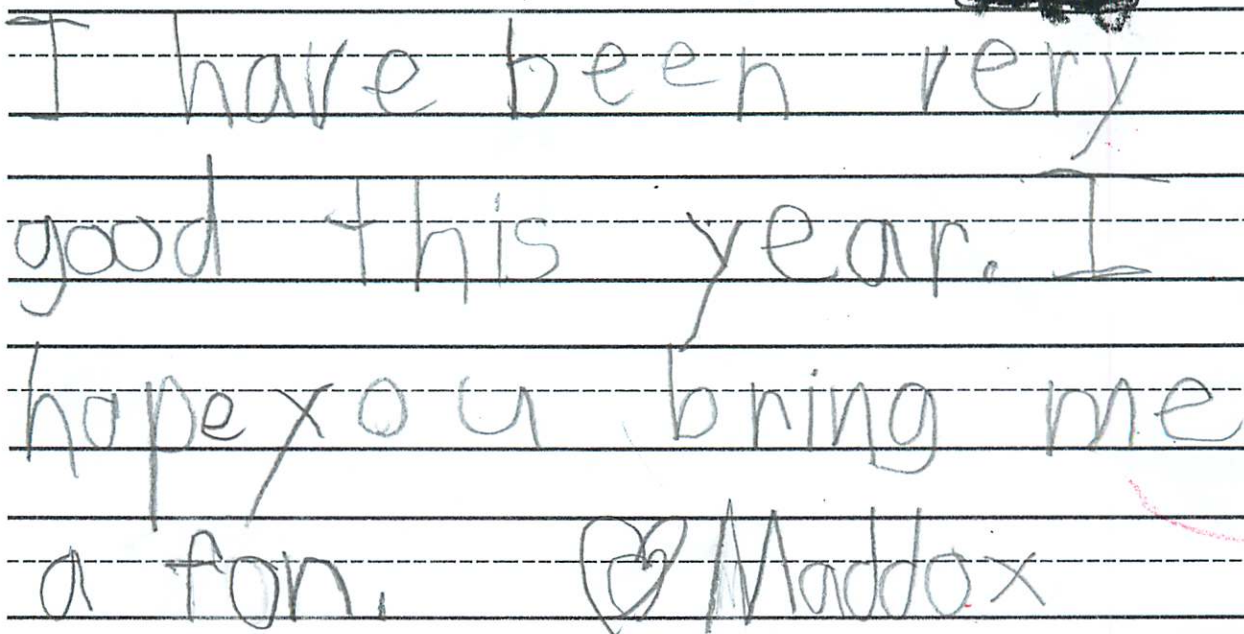 I have been very
good this year. I
hope you bring me
a fon. Maddox